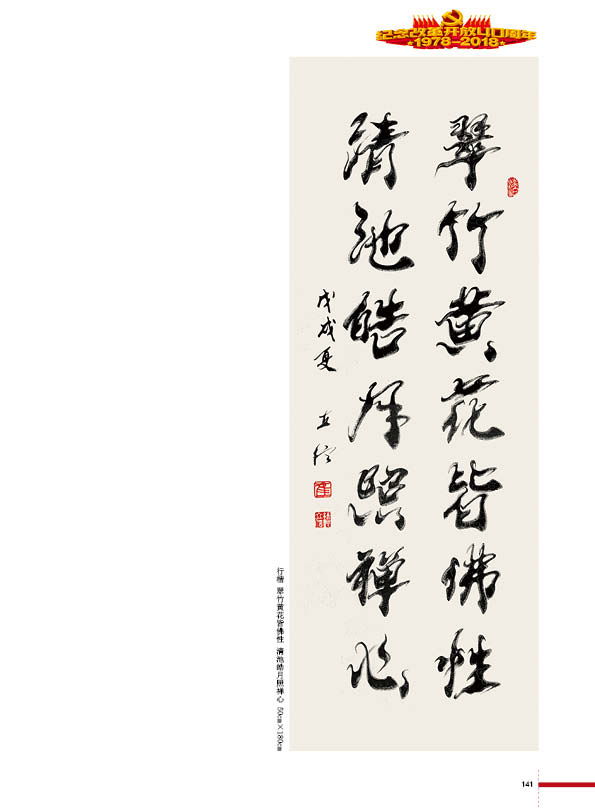 纪念改革开放40周年
1978-2018
翠竹黄花皆佛性
清池皓月照禅心
戊戌夏
行楷 翠竹黄花皆佛性 清池皓月照禅心 50cm×180cm
141